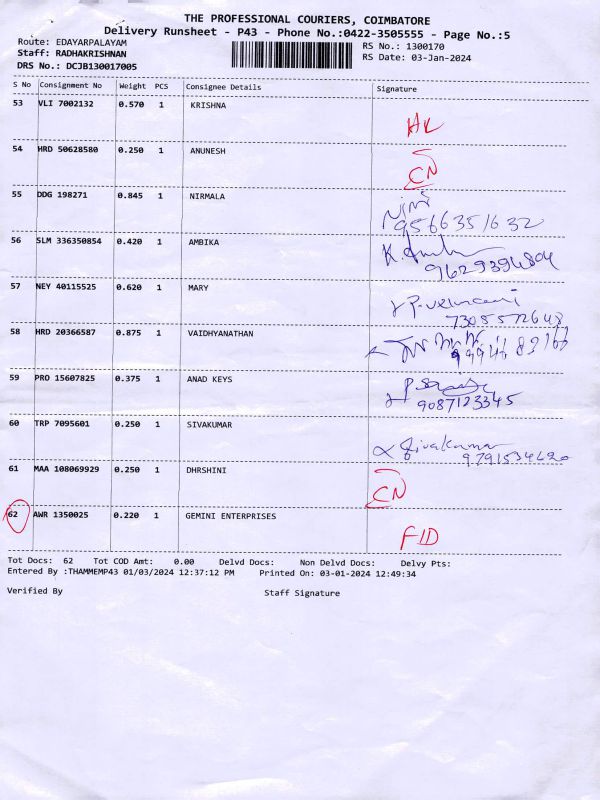 THE PROFESSIONAL COURIERS, COIMBATORE
Delivery Runsheet - P43 - Phone No.:0422-3505555 - Page No.:5
Route: EDAYARPALAYAM
RS No.: 1300170
Staff: RADHAKRISHNAN
RS Date: 03-Jan-2024
DRS No.: DCJB130017005
S No Consignment No Weight PCS Consignee Details Signature
53 VLI 7002132 0.570 1 KRISHNA
54 HRD 50628580 0.250 1 ANUNESH CN
55 DDG 198271 0.845 1 NIRMALA
9566351632
56 SLM 336350854 0.420 1 AMBIKA
9629394804
57 NEY 40115525 0.620 1 MARY
7305572648
58 HRD 20366587 0.875 1 VAIDHYANATHAN
59 PRO 15607825 0.375 1 ANAD KEYS
9087123345
60 TRP 7095601 0.250 1 SIVAKUMAR Sivakumar
61 MAA 108069929 0.250 1 DHRSHINI CN
62 AWR 1350025 0.220 1 GEMINI ENTERPRISES
Tot Docs: 62 Tot COD Amt: 0.00 Delvd Docs: Non Delvd Docs: Delvy Pts:
Entered By :THAMMEMP43 01/03/2024 12:37:12 PM Printed On: 03-01-2024 12:49:34
Verified By Staff Signature